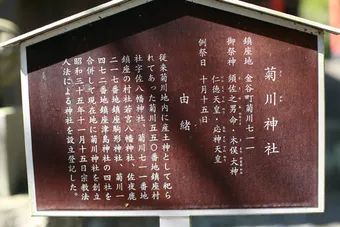 菊川神社
鎮座地 金谷町菊川七一一
御祭神 須佐之男命・木俣大神
仁徳天皇・応神天皇
例祭日 十月十五日
由緒
従来菊川地内に産土神として祀ら
れてあった菊川五五〇番地鎮座村
社宇佐八幡神社、菊川七一一番地
鎮座の村社若宮八幡神社、佐夜鹿
二一七番地鎮座駒形神社、菊川一
四七二番地鎮座津島神社の四社を
合併して現在地に菊川神社を創立
昭和三十五年十一月十五日宗教法
人法による神社を設立登記した。